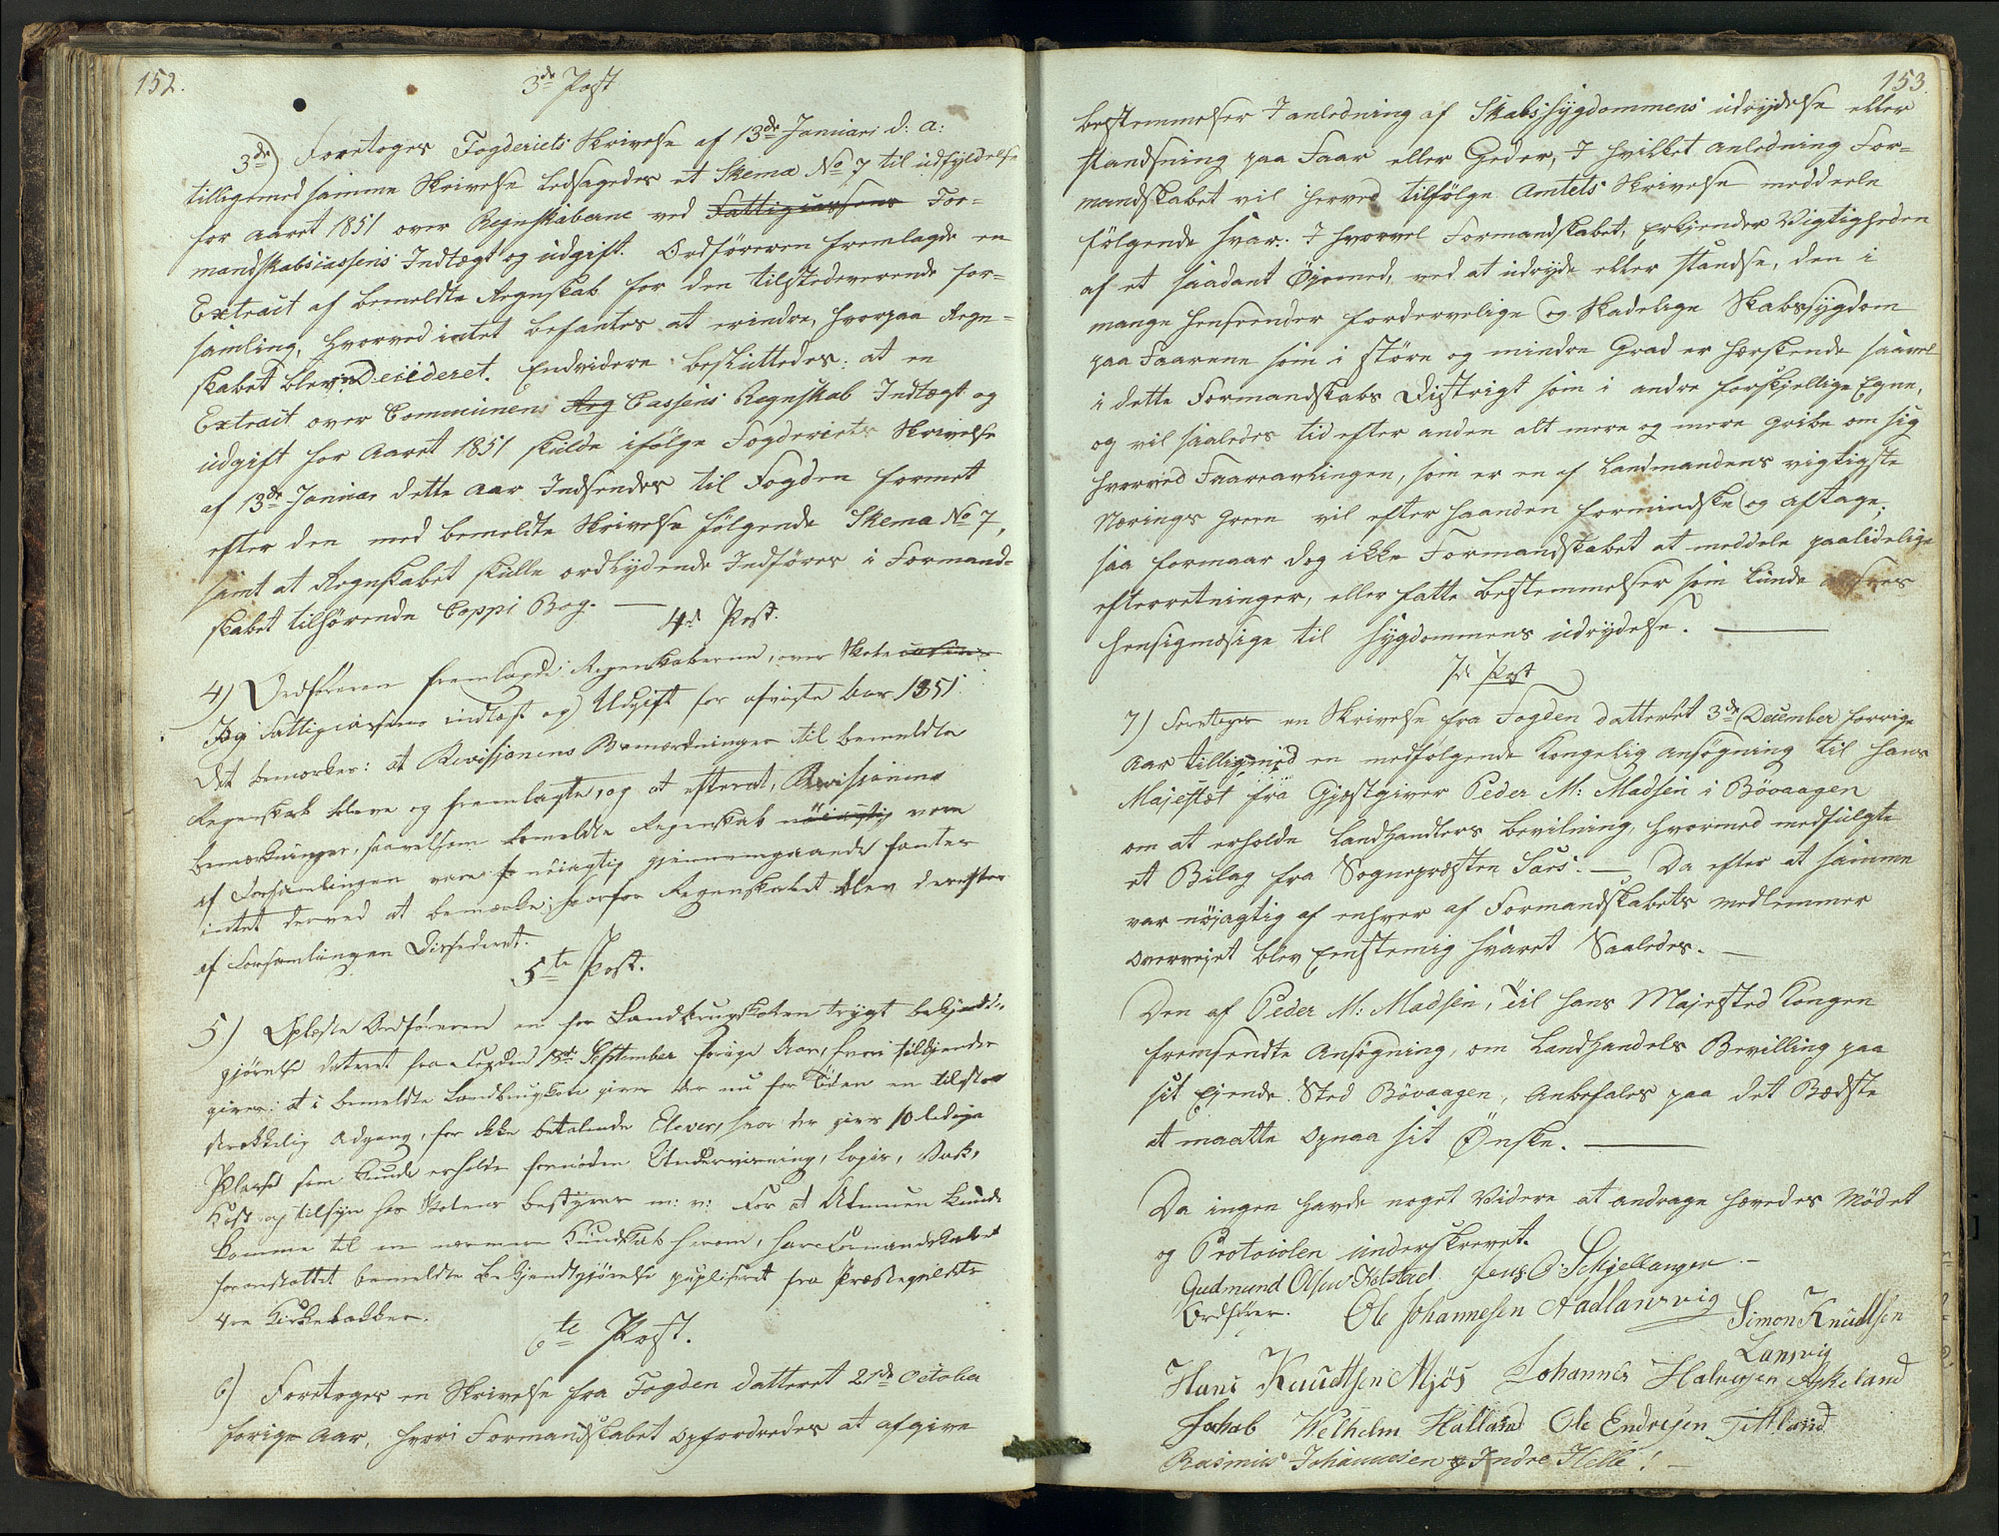 152.
3de Post
3de) Foretoges Fogderiets Skrivelse af 13de Januari d: a:
tilligemed samme Skrivelse ledsagedes et Skema No 7 til udfyldelse
for aaret 1851 over Regnskaberne ved Fattigcassens For-
mandskabscassens Indtægt og udgift. Ordføreren fremlagde en
Extract af bemeldte Regnskab for den tilstedeverende for-
samling, hvorved intet befantes at erindre, hvorpaa Regn-
skabet blev Deciideret. Endvidere besluttedes: at en
Extrait over Communens Reg Cassens Regnskab Indtægt og
udgift for Aaret 1851 skulde ifølge Fogderiets Skrivelse
af 13de Januar dette aar Indsendes til Fogden formet
efter den med bemeldte Skrivelse følgende Skema No 7,
samt at Regnskabet skulle ordlydende Indføres i Formand-
skabet tilhørende Coppi Bog. —
4de Post.
4) Ordføreren fremlagde Regenskaberne, over Skole
Og Fattigcassens indtægt og Udgift for afvigte Aar 1851.
Det bemærkes: at Revisjonens Bemærdninger til bemeldte
Regenskab bleve og fremlagte, og at efterat, Revisjonens
bemærkninger, saavelsom bemeldte Regenskab nöiagtig vare
af Forsamlingen vare nöiagtig gjennemgaaende fantes
intet derved at bemærke, hvorfor Regenskabet blev derefter
af Forsamlingen Dissederet.
5te Post.
5) Oplæste Ordføreren en for Landbrugskolen trygt bekjendt-
gjørelse dateret fra Fogden 18de September forrige Aar, hvori tilkjende
gives: at i bemeldte Landbrugskole gives der nu for Tiden en tilstræ-
strækkelig Adgang, for ikke betalende Elever, hvor der gives 10 ledige
Pladse som kunde erholde fornöden Undervisning, Logis, Vask,
Kost og tilsyn hos Skolens bestyrer m: v: For at Almuen kunde
komme til en nærmere Kundskab herom, har Formandskabet
foranstaltet bemeldte Bekjendtgjörelse pupliseret fra Præstegieldets
4re Kirkebakker.
6te Post.
6) Foretoges en Skrivelse fra Fogden datteret 21de October
forige Aar, hvori Formandskabet opfordredes at afgive
153.
bestemmelser I anledning af Skabssygdommens udrydelse eller
standsning paa Faar eller Geder, I hvilket anledning For-
mandskabet vil herved tilfölge Amtets Skrivelse meddeele
fölgende svar: I hvorvel Formandskabet, Erkjender Vigtigheden
af et saadant Öjemed, ved at udryde eller standse, den i
mange henseender fordervelige og skadelige Skabssygdom
paa Faarene som i större og mindre Grad er herskende saavel
i dette Formandskabs Distrigt som i andre forskjellige Egne,
og vil saaledes tid efter anden alt mere og mere gribe om sig
hvorved Faareavlingen, som er en af Landmandens vigtigste
Nærings green vil efter haanden formindske og aftage;
saa formaar dog ikke Formandskabet at meddele paalidelige
efterretninger, eller fatte bestemmelser som kunde
hensigmæsige til sygdommens udrydelse. —
7de Post
7) Foretoges en Skrivelse fra Fogden datteret 3de December forrige
Aar tilligemed en medfølgende kongelig ansögning til Hans
Majestæt fra Gjestgiver Peder M: Madsen i Bövaagen
om at erholde Landhandlers bevilning, hvormed medfulgte
et Bilag fra Sognepresten Sars. — Da efter at samme
var nöjagtig af enhver af Formandskabets medlemmer
overvejet blev Eenstemig svaret Saaledes. —
Den af Peder M: Madsen, Til Hans Majested Kongen
fremsendte Ansøgning, om Landhandels Bevilling paa
sit Ejende Sted Bövaagen, Anbefales paa det Bedste
at maatte opnaa sit Önske. —
Da ingen havde noget Videre at andrage hævedes Mödet
og Protocolen underskrevet.
Gudmund Olsen Kolstad Jens O. Schjellanger —
Ordfører. Ole Johannesen Aadlansvig Simon Knudsen
Lansvig
Hans Knudtsen Mjös Johannes Halvorsen Askeland
Jakob Welhelm Halland Ole Endresen Titland
Rasmus Johannesen Indre Helle! —